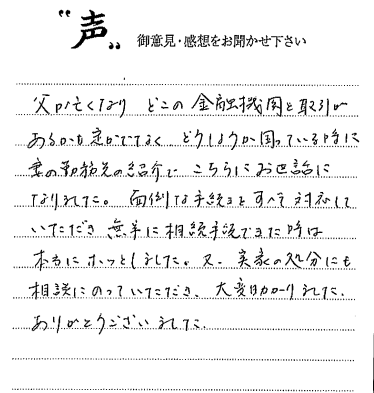 "声" 御意見・感想をお聞かせ下さい
父が亡くなり どこの金融機関と取引が
あるかも定かでなく どうしようか困っている時に
妻の勤務先の紹介で こちらにお世話に
なりました。面倒な手続きをすべて対応して
いただき 無事に相続手続できた時は
本当にホッとしました。又、実家の処分にも
相談にのっていただき、大変助かりました。
ありがとうございました。